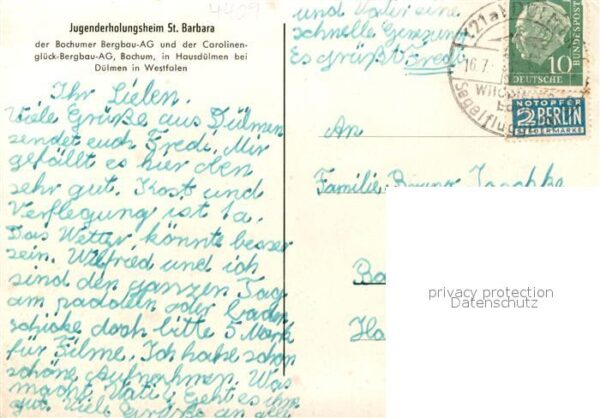 4409
Jugenderholungsheim St. Barbara
der Bochumer Bergbau-AG und der Carolinen-
glück-Bergbau-AG, Bochum, in Hausdülmen bei
Dülmen in Westfalen
Ihr Lieben.
Viele Grüße aus Dülmen
sendet euch Fredi. Mir
gefällt es hier oben
sehr gut. Kost und
Verflegung ist 1a.
Das Wetter könnte besser
sein. Wilfried und ich
sind den ganzen Tag
am paddeln oder baden
schicke doch bitte 5 Mark
für Filme. Ich habe schon
schöne Aufnahmen. Was
macht Vati, geht es ihm
gut. Viele Grüße an alle
und Vater eine
schnelle Genesung
Es grüßt Fredi
(21a) DÜLMEN
16.7.
Segelflug
DEUTSCHE
BUNDESPOST
10
NOTOPFER
2 BERLIN
STEUERMARKE
An
Familie Bruno
privacy protection
www.ansichtskartenversand.com